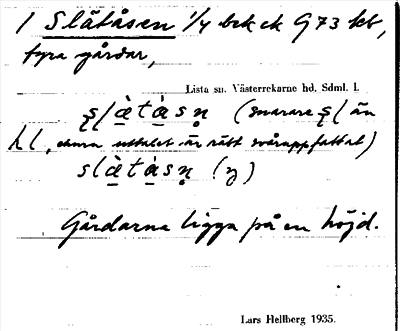 1 Slätåsen 1/4 brk ek G 73 kb,
fyra gårdar,
Lista sn. Västerrekarne hd. Sdml. l.
ʂlätåsṇ (snarare ʂl än
hl, ehuru uttalet är rätt svåruppfattat)
slätåsṇ (y)
Gårdarna ligga på en höjd.
Lars Hellberg 1935.